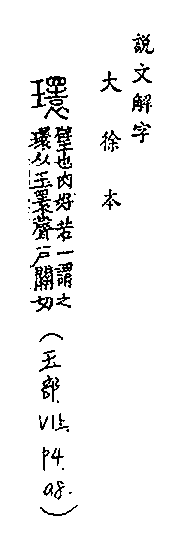 說文解字
大徐本
環 璧也肉好若一謂之
環从玉睘聲戶關切
(玉部. V1上. P4. a8.)